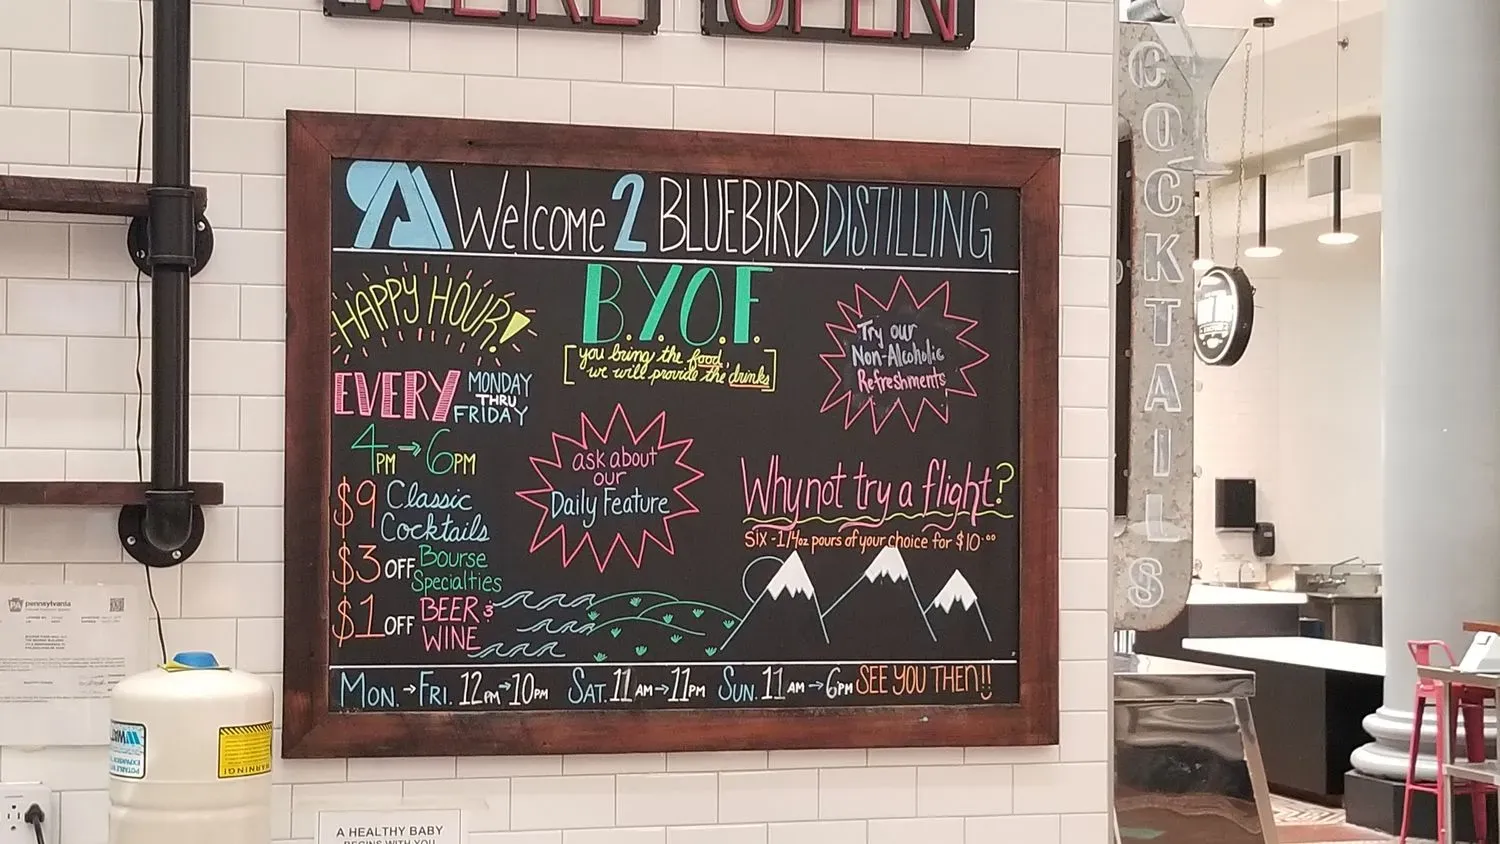 WE'RE OPEN
Welcome 2 BLUEBIRD DISTILLING
HAPPY HOUR!
EVERY MONDAY
THRU
FRIDAY
4PM → 6PM
$9 Classic
Cocktails
$3 OFF Bourse
Specialties
$1 OFF BEER &
WINE
B.Y.O.F.
[you bring the food,
we will provide the drinks]
ask about
our
Daily Feature
Try our
Non-Alcoholic
Refreshments
Why not try a flight?
SIX - 1/4oz pours of your choice for $10.00
MON. → FRI. 12PM → 10PM SAT. 11AM → 11PM SUN. 11AM → 6PM SEE YOU THEN!!
COCKTAILS
pennsylvania
WARNING!
A HEALTHY BABY
BEGINS WITH YOU